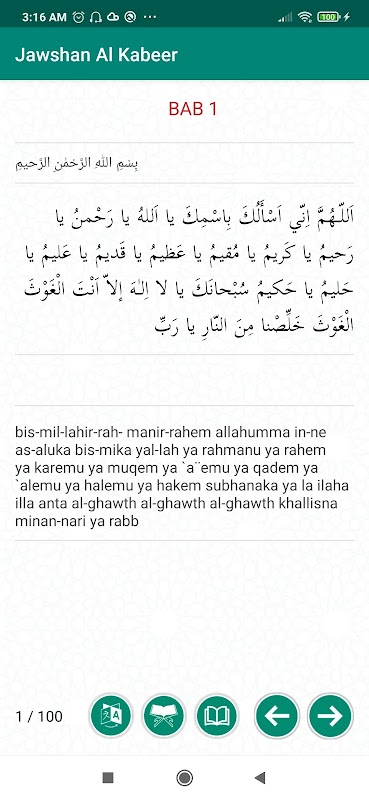 3:16 AM
100
Jawshan Al Kabeer
BAB 1
بِسْمِ اللهِ الرَّحْمٰنِ الرَّحيمِ
اَللّـهُمَّ اِنّي اَسْأَلُكَ بِاسْمِكَ يا اَللهُ يا رَحْمنُ يا
رَحيمُ يا كَريمُ يا مُقيمُ يا عَظيمُ يا قَديمُ يا عَليمُ يا
حَليمُ يا حَكيمُ سُبْحانَكَ يا لا اِلـهَ إلاّ اَنْتَ الْغَوْثَ
الْغَوْثَ خَلِّصْنا مِنَ النّارِ يا رَبِّ
bis-mil-lahir-rah- manir-rahem allahumma in-ne
as-aluka bis-mika yal-lah ya rahmanu ya rahem
ya karemu ya muqem ya `a¨emu ya qadem ya
`alemu ya halemu ya hakem subhanaka ya la ilaha
illa anta al-ghawth al-ghawth al-ghawth khallisna
minan-nari ya rabb
1 / 100